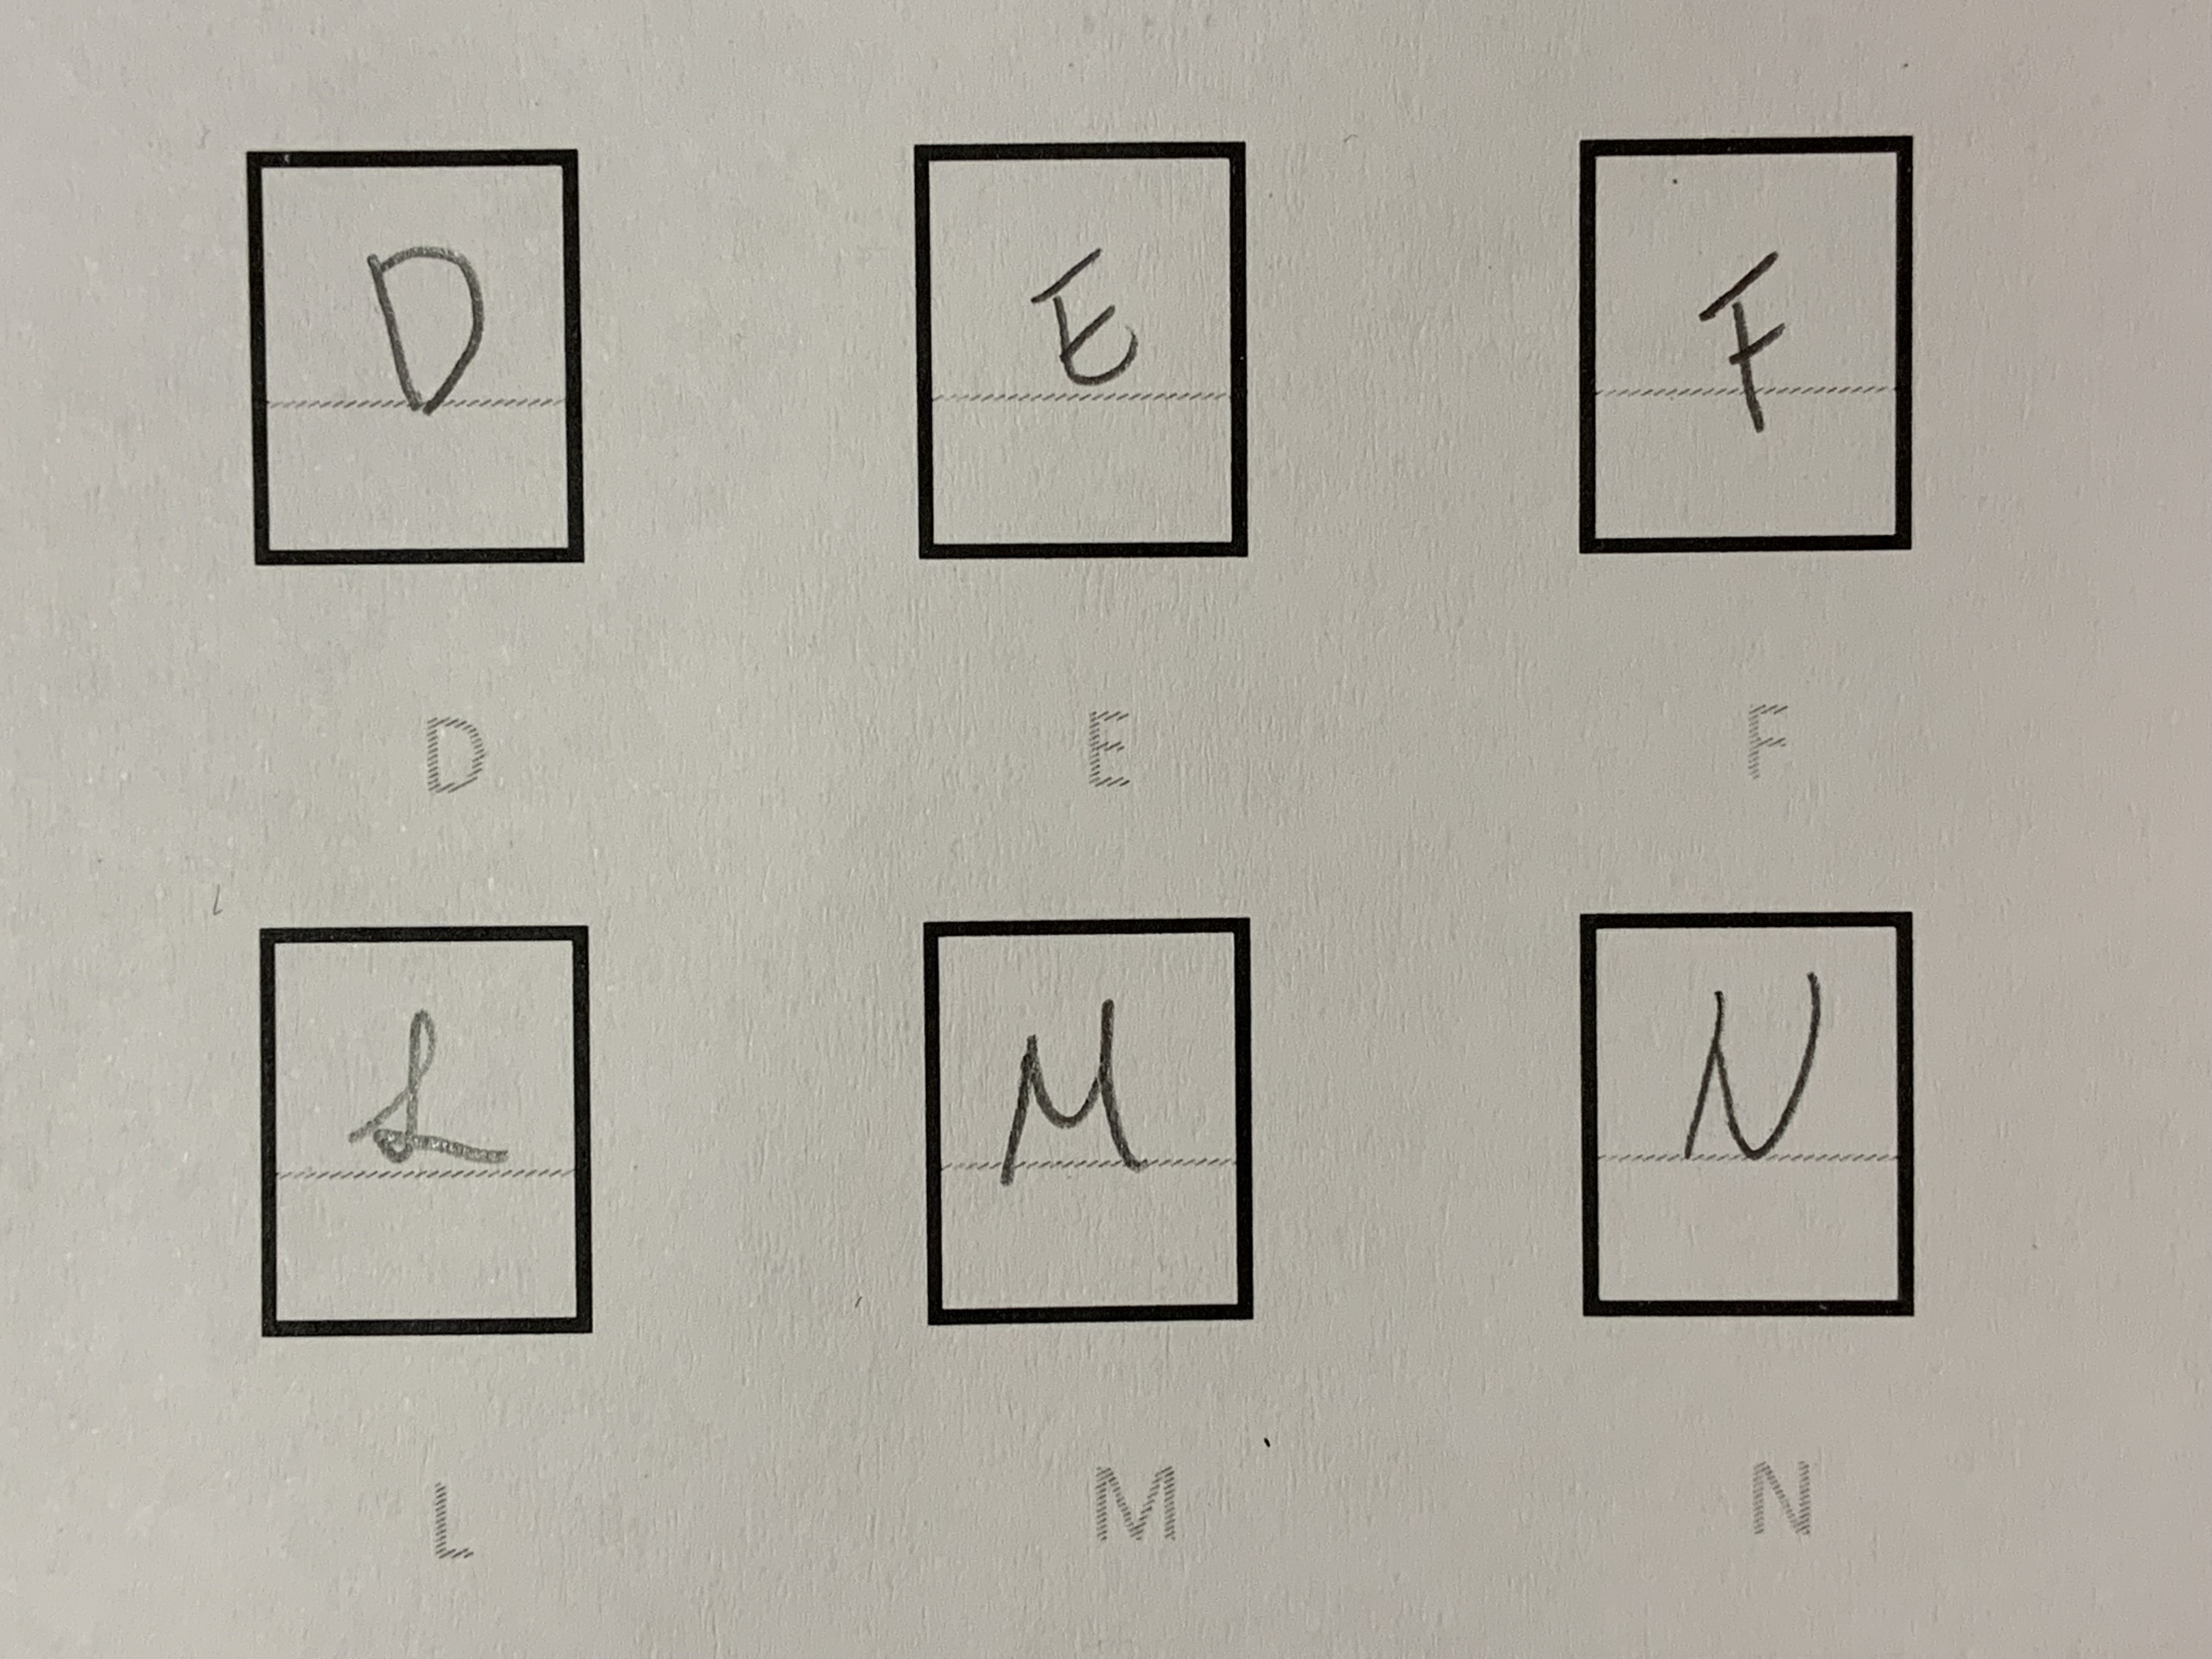 D E F
D E F
L M N
L M N